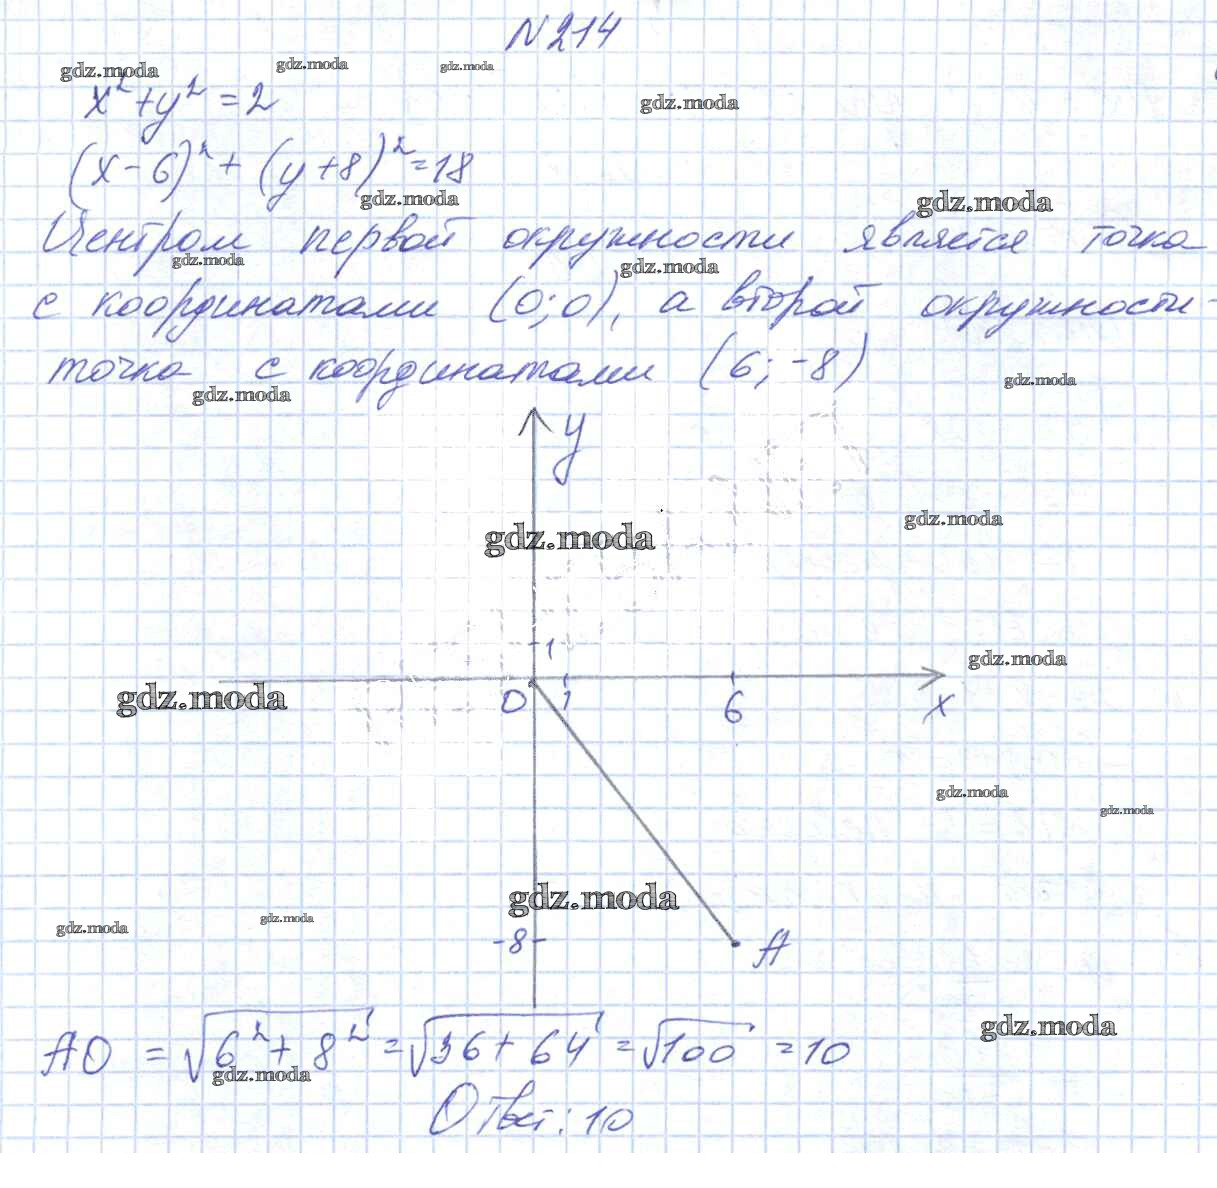 N 214
gdz.moda gdz.moda gdz.moda
x² + y² = 2
gdz.moda
(x - 6)² + (y + 8)² = 18
gdz.moda gdz.moda
Центром первой окружности является точка
gdz.moda gdz.moda
с координатами (0; 0), а второй окружности -
точка с координатами (6; -8)
gdz.moda gdz.moda
y
gdz.moda gdz.moda
1
gdz.moda
gdz.moda 0 1 6 x
gdz.moda gdz.moda
gdz.moda
gdz.moda gdz.moda
-8 A
AO = √6² + 8² = √36 + 64 = √100 = 10
gdz.moda gdz.moda
Ответ: 10